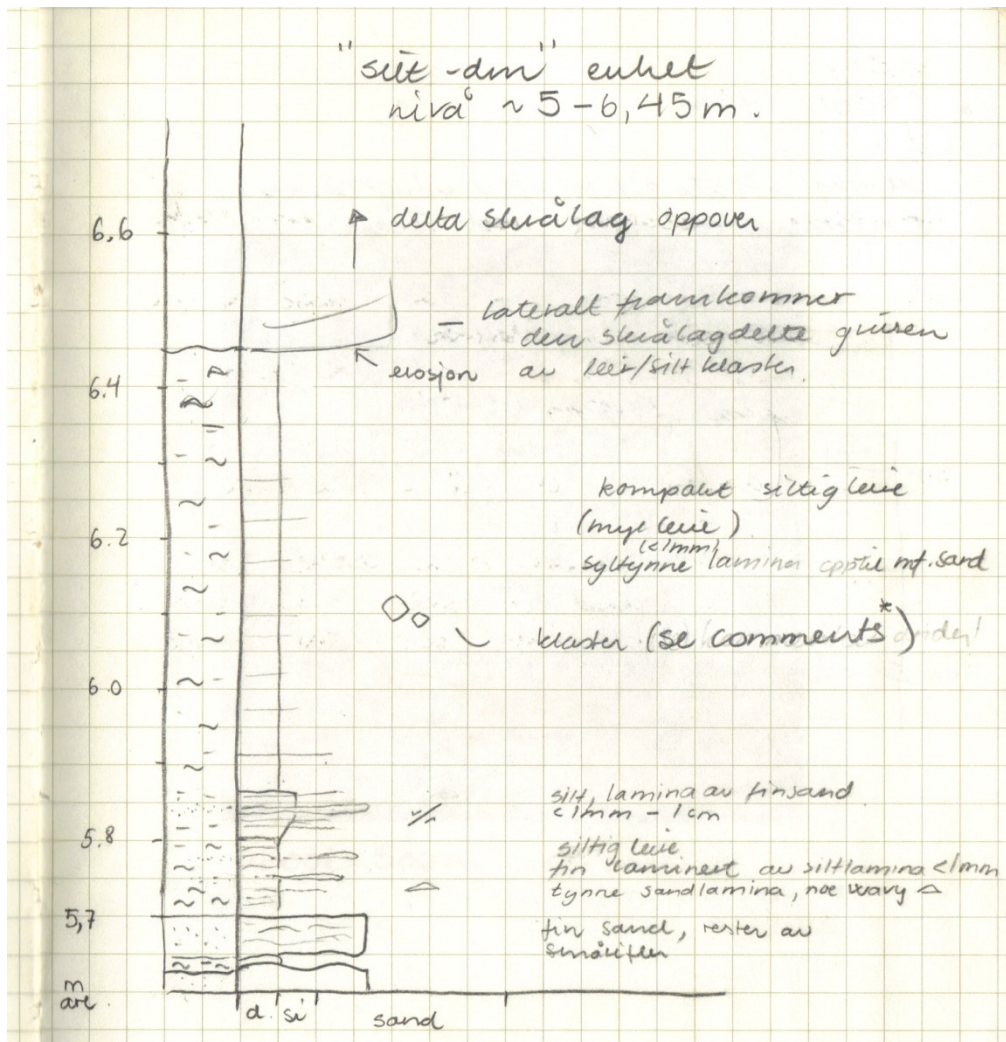 "silt-dm" enhet
nivå ~ 5-6,45m.
6,6
delta skrålag oppover
– lateralt framkommer
den skrålagdelte grusen
erosjon av leir/silt klaster.
6.4
kompakt siltig leire
(mye leire)
(<1mm)
6.2
syltynne lamina opptil mf. sand
klaster (se comments*)
6.0
silt, lamina av finsand
<1mm – 1cm
5.8
siltig leire
fin laminert av siltlamina <1mm
tynne sandlamina, noe wavy
5,7
fin sand, rester av
m
si
sand